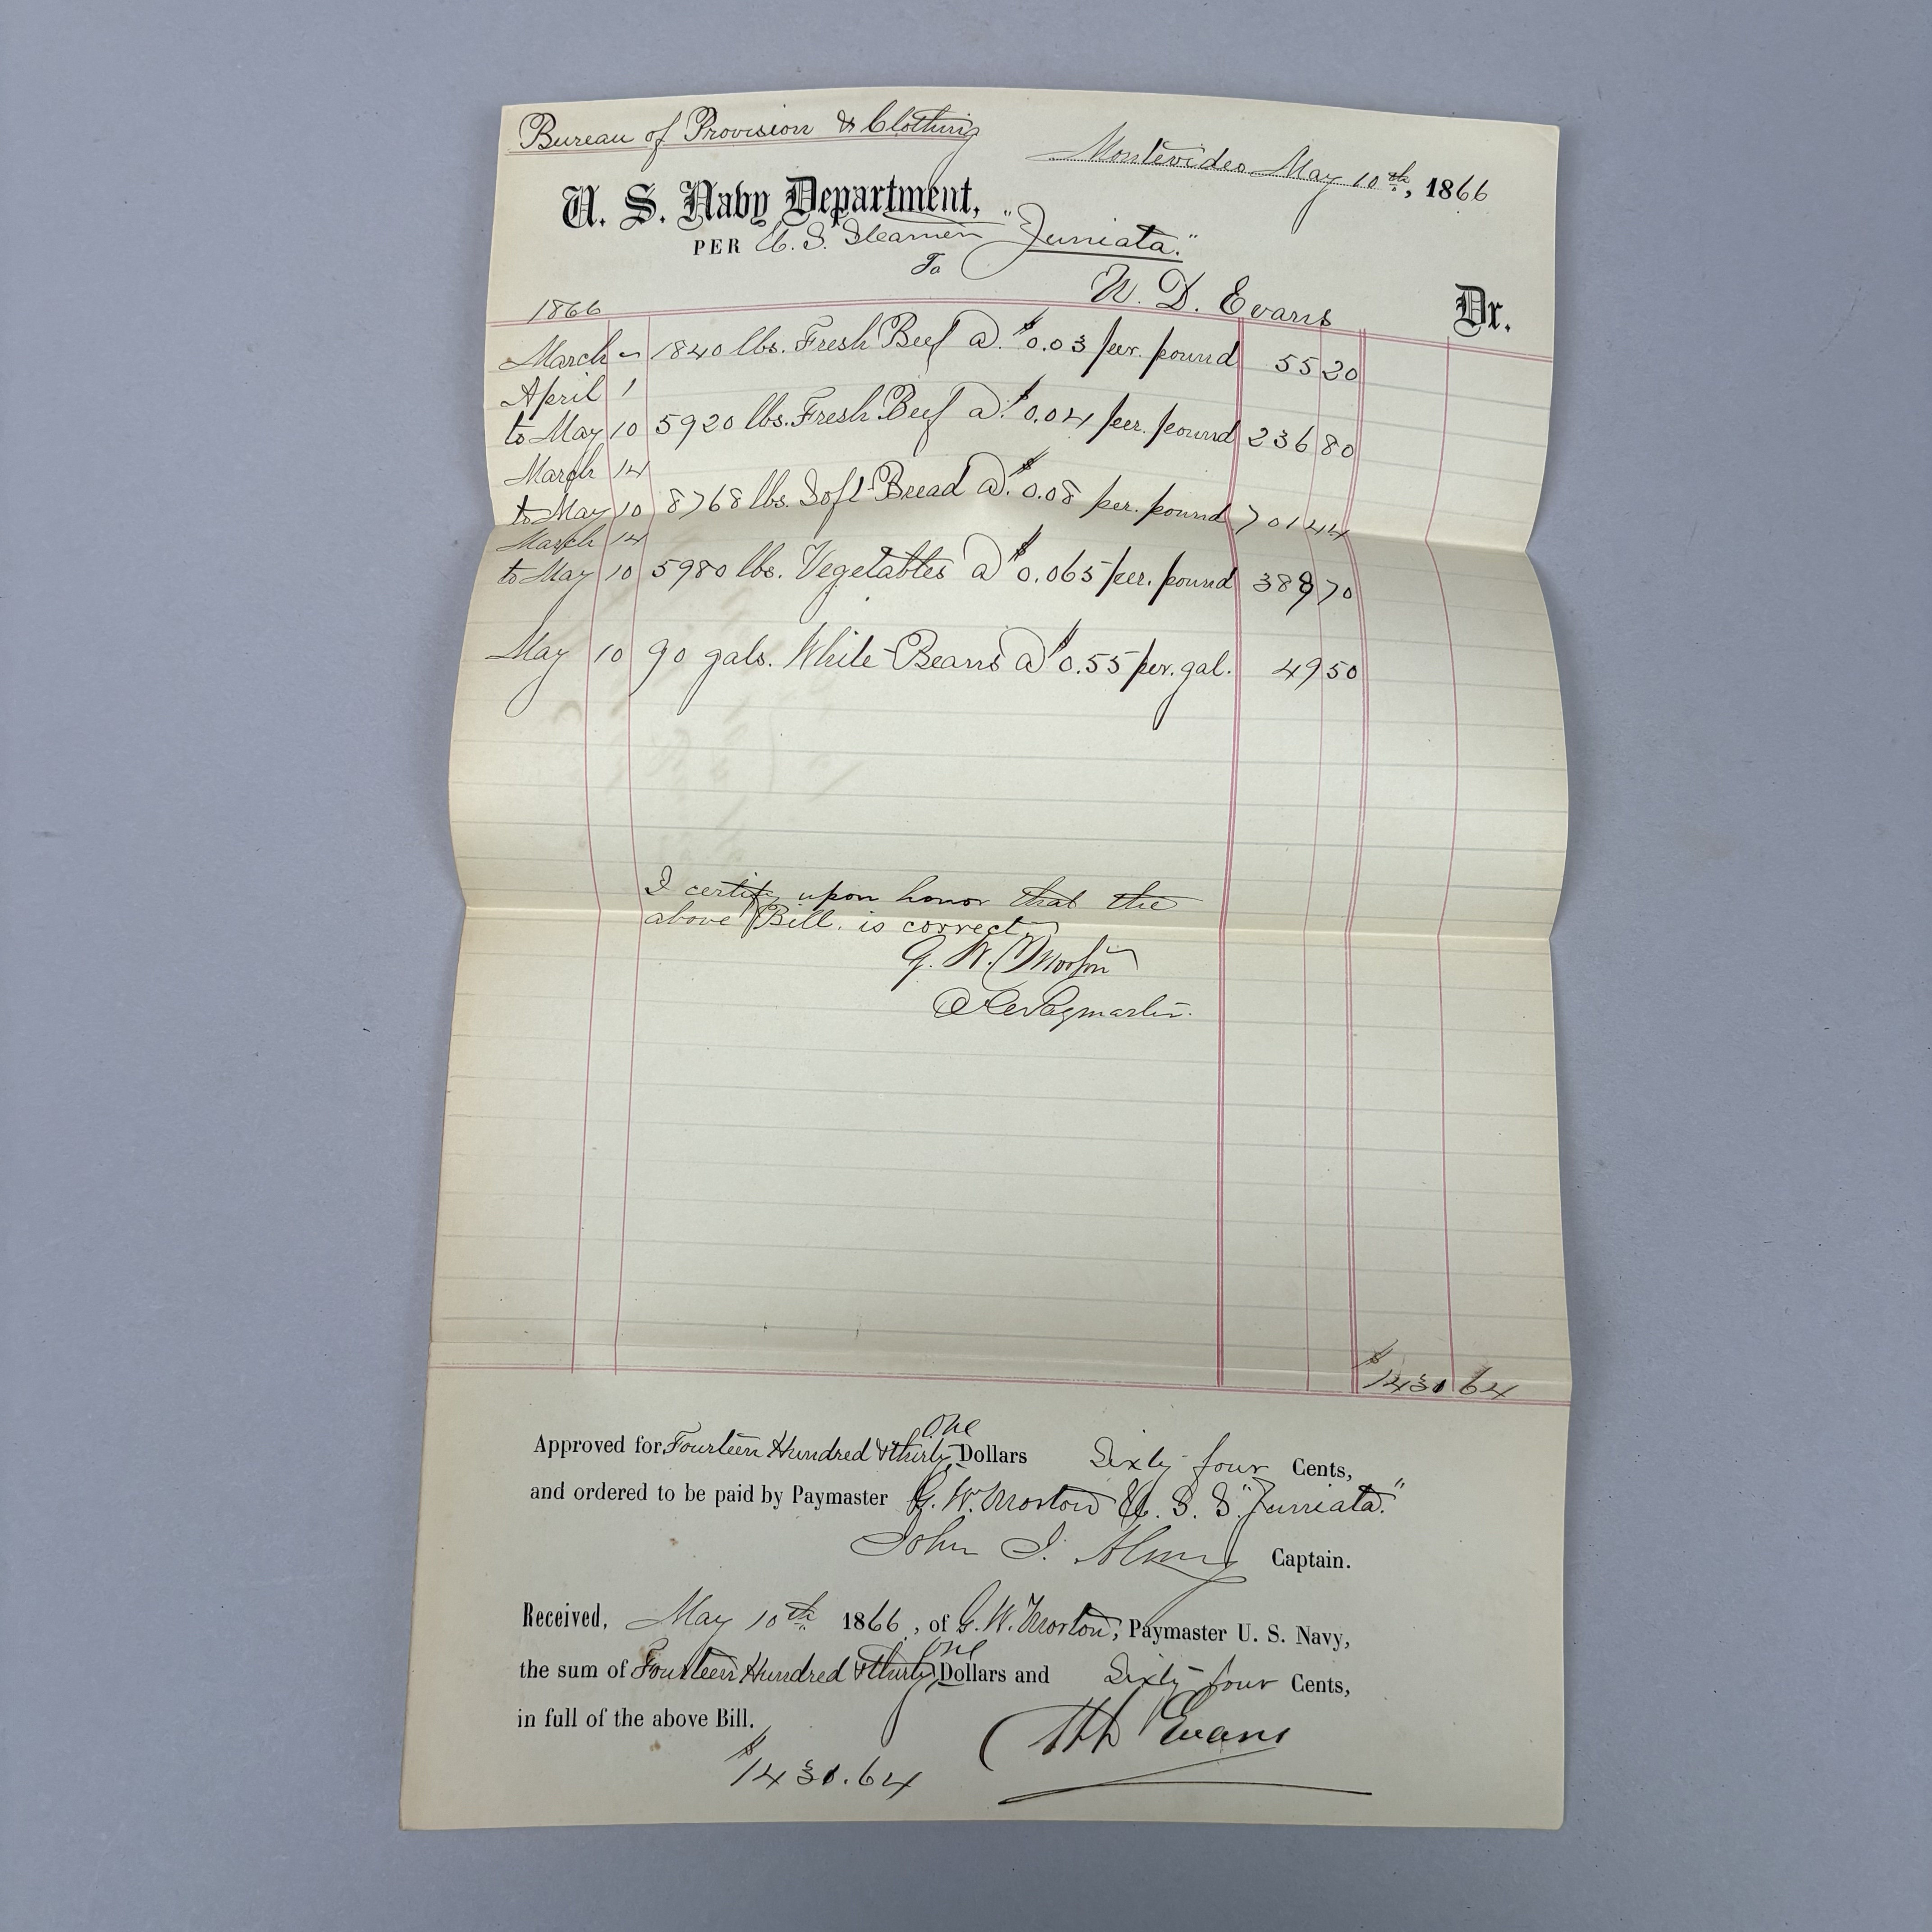 Bureau of Provision & Clothing
Montevideo May 10th, 1866
U. S. Navy Department,
PER U. S. Steamer "Juniata."
To
W. D. Evans Dr.
1866
March ~ 1840 lbs. Fresh Beef @ $0.03 per. pound 55 20
April 1
to May 10 5920 lbs. Fresh Beef @ $0.04 per. pound 236 80
March 14
to May 10 8768 lbs. Soft Bread @ $0.08 per. pound 701 44
March 14
to May 10 5980 lbs. Vegetables @ $0.065 per. pound 388 70
May 10 90 gals. White Beans @ $0.55 per. gal. 49 50
I certify upon honor that the
above Bill. is correct.
G. W. Morton
Paymaster.
$1431 64
Approved for Fourteen Hundred & thirty one Dollars Sixty four Cents,
and ordered to be paid by Paymaster G. W. Morton U. S. S. "Juniata."
John J. Almy Captain.
Received, May 10th 1866, of G. W. Morton, Paymaster U. S. Navy,
the sum of Fourteen Hundred & thirty one Dollars and Sixty four Cents,
in full of the above Bill.
Evans
$1431.64